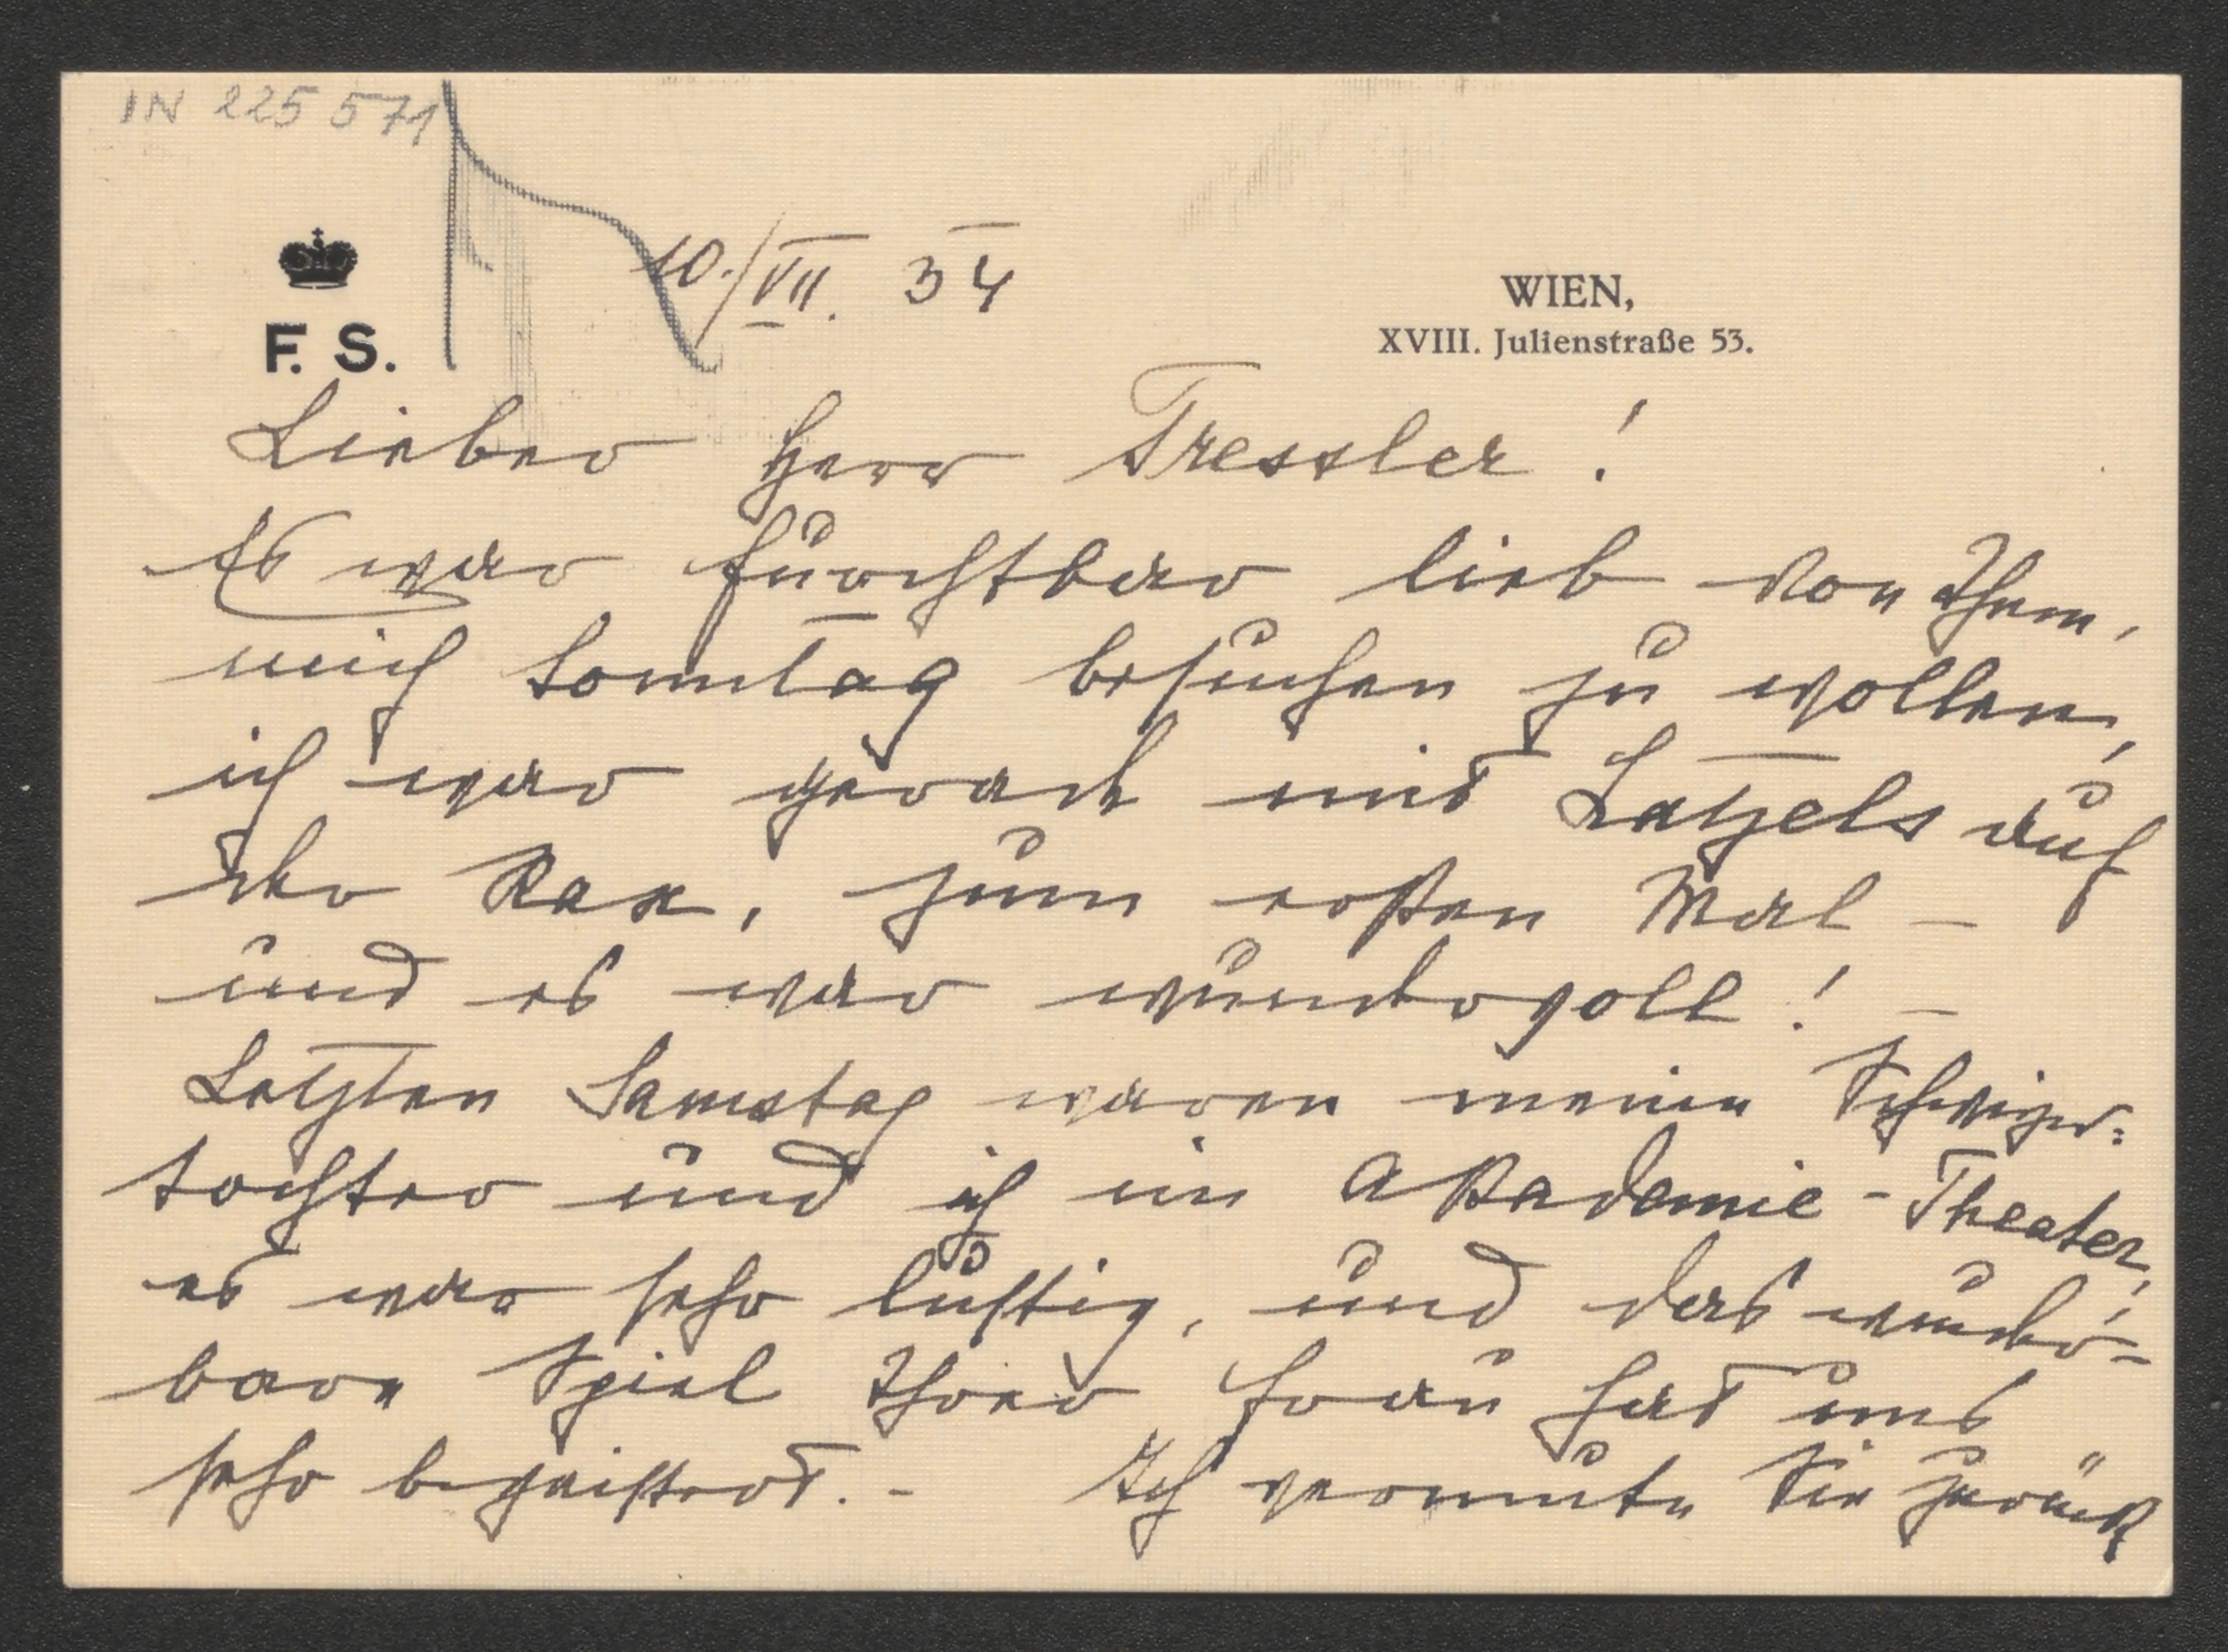 IN 225 571
10./VII. 34
WIEN,
XVIII. Julienstraße 53.
F. S.
Lieber Herr Tressler!
Es war furchtbar lieb von Ihnen,
mich Sonntag besuchen zu wollen,
ich war gerade mit Latzels auf
der Rax, zum ersten Mal –
und es war wundervoll! –
Letzten Samstag waren meine Schwieger=
tochter und ich im Akademie-Theater,
es war sehr lustig, und das wunder=
bare Spiel Ihrer Frau hat uns
sehr begeistert. – Ich vermute Sie zurück